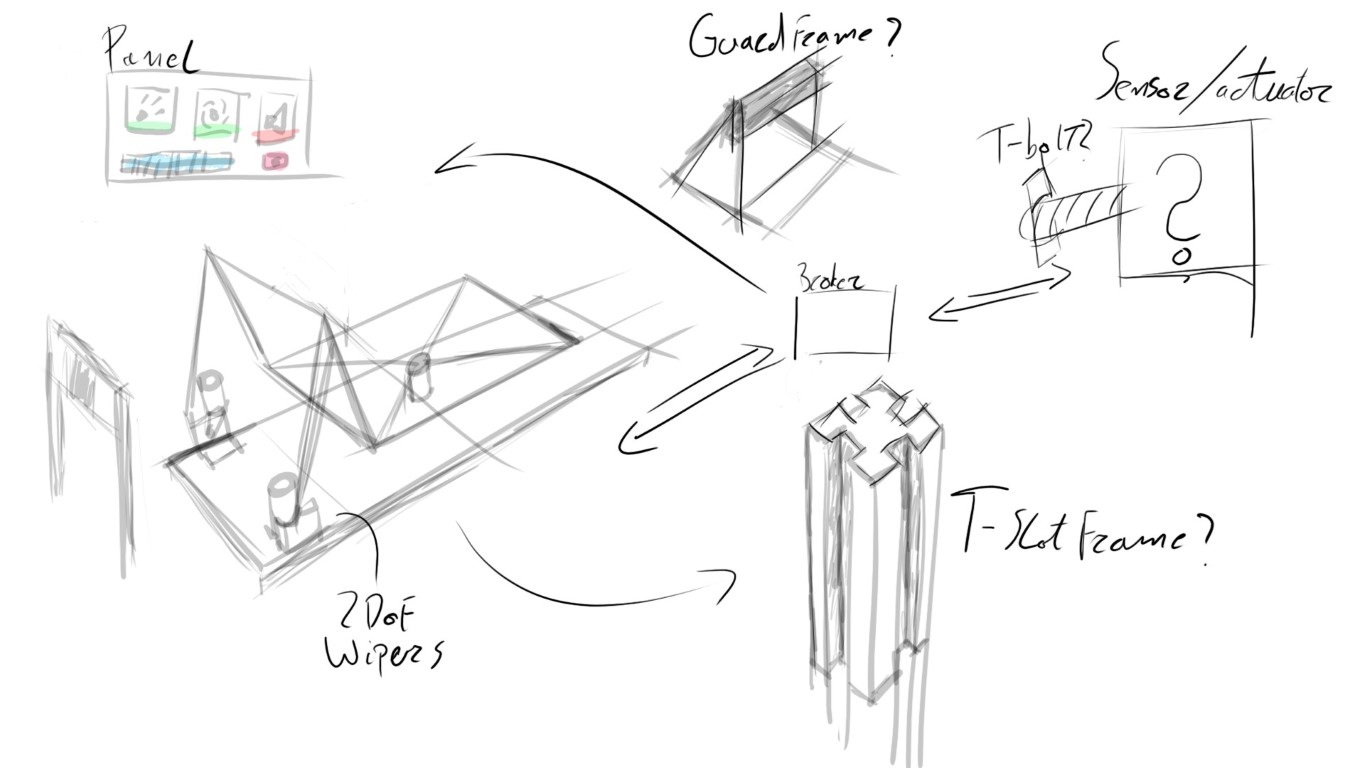 Panel
Guard Frame?
Sensor/actuator
T-bolt?
Broker
T-Slot Frame?
2 DoF
Wipers